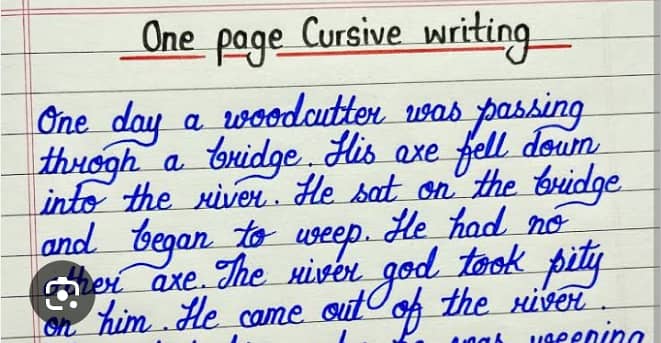 One page Cursive writing
One day a woodcutter was passing
throgh a bridge. His axe fell down
into the river. He sat on the bridge
and began to weep. He had no
other axe. The river god took pity
on him. He came out of the river.
was weeping